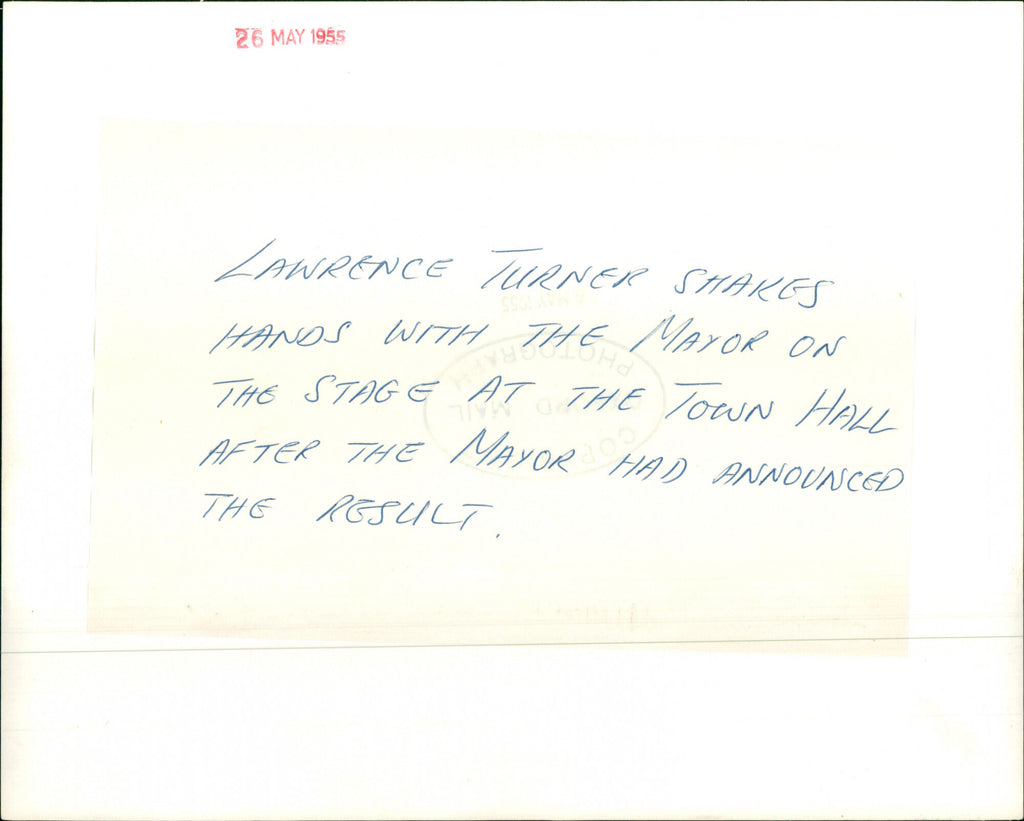 26 MAY 1955
LAWRENCE TURNER SHAKES
HANDS WITH THE MAYOR ON
THE STAGE AT THE TOWN HALL
AFTER THE MAYOR HAD ANNOUNCED
THE RESULT.
PHOTOGRAPH
MAIL